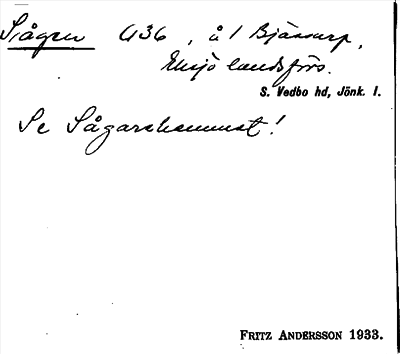 Sågen G36, å i Bjässarp,
Eksjö landsförs.
S. Vedbo hd, Jönk. l.
Se Sågarehemmet!
FRITZ ANDERSSON 1933.